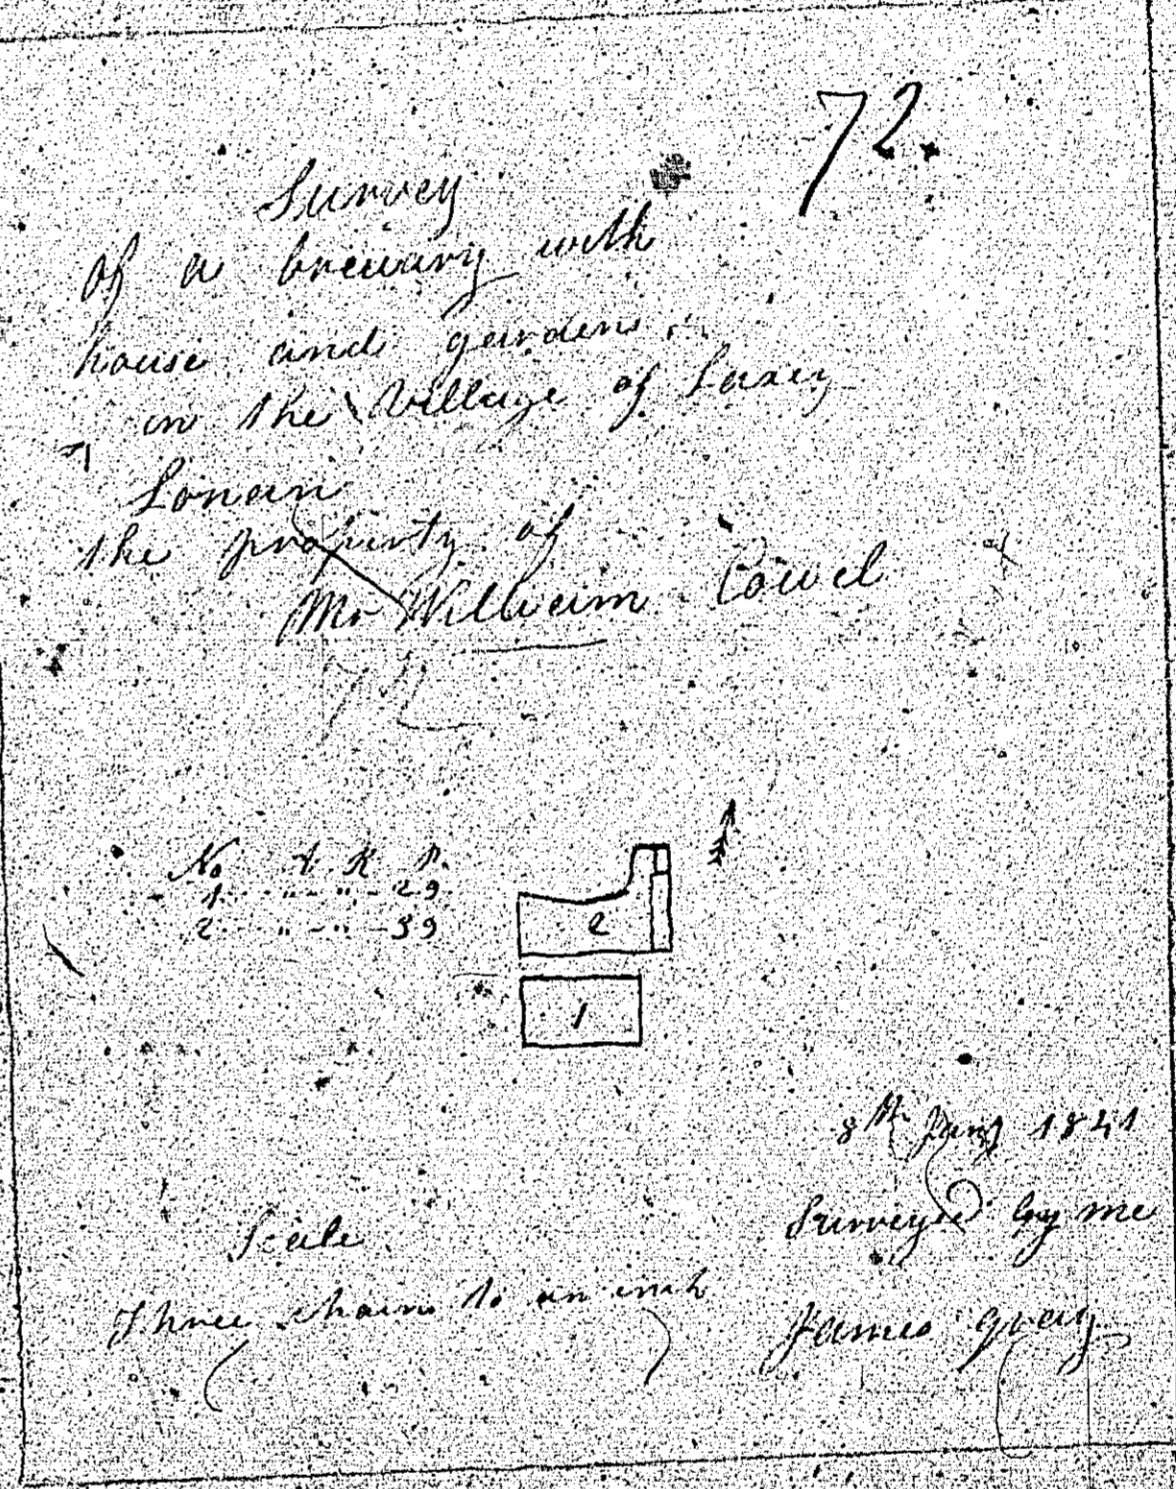 72.
Survey
of a brewary with
house and gardens
in the Village of Laxey
Lonan
the property of
Mr William Cowel
72
No A R P.
1 " - " - 29
2 " - " - 39
2
1
8th Jany 1841
Surveyed by me
James Gray
Scale
Three chains to an inch